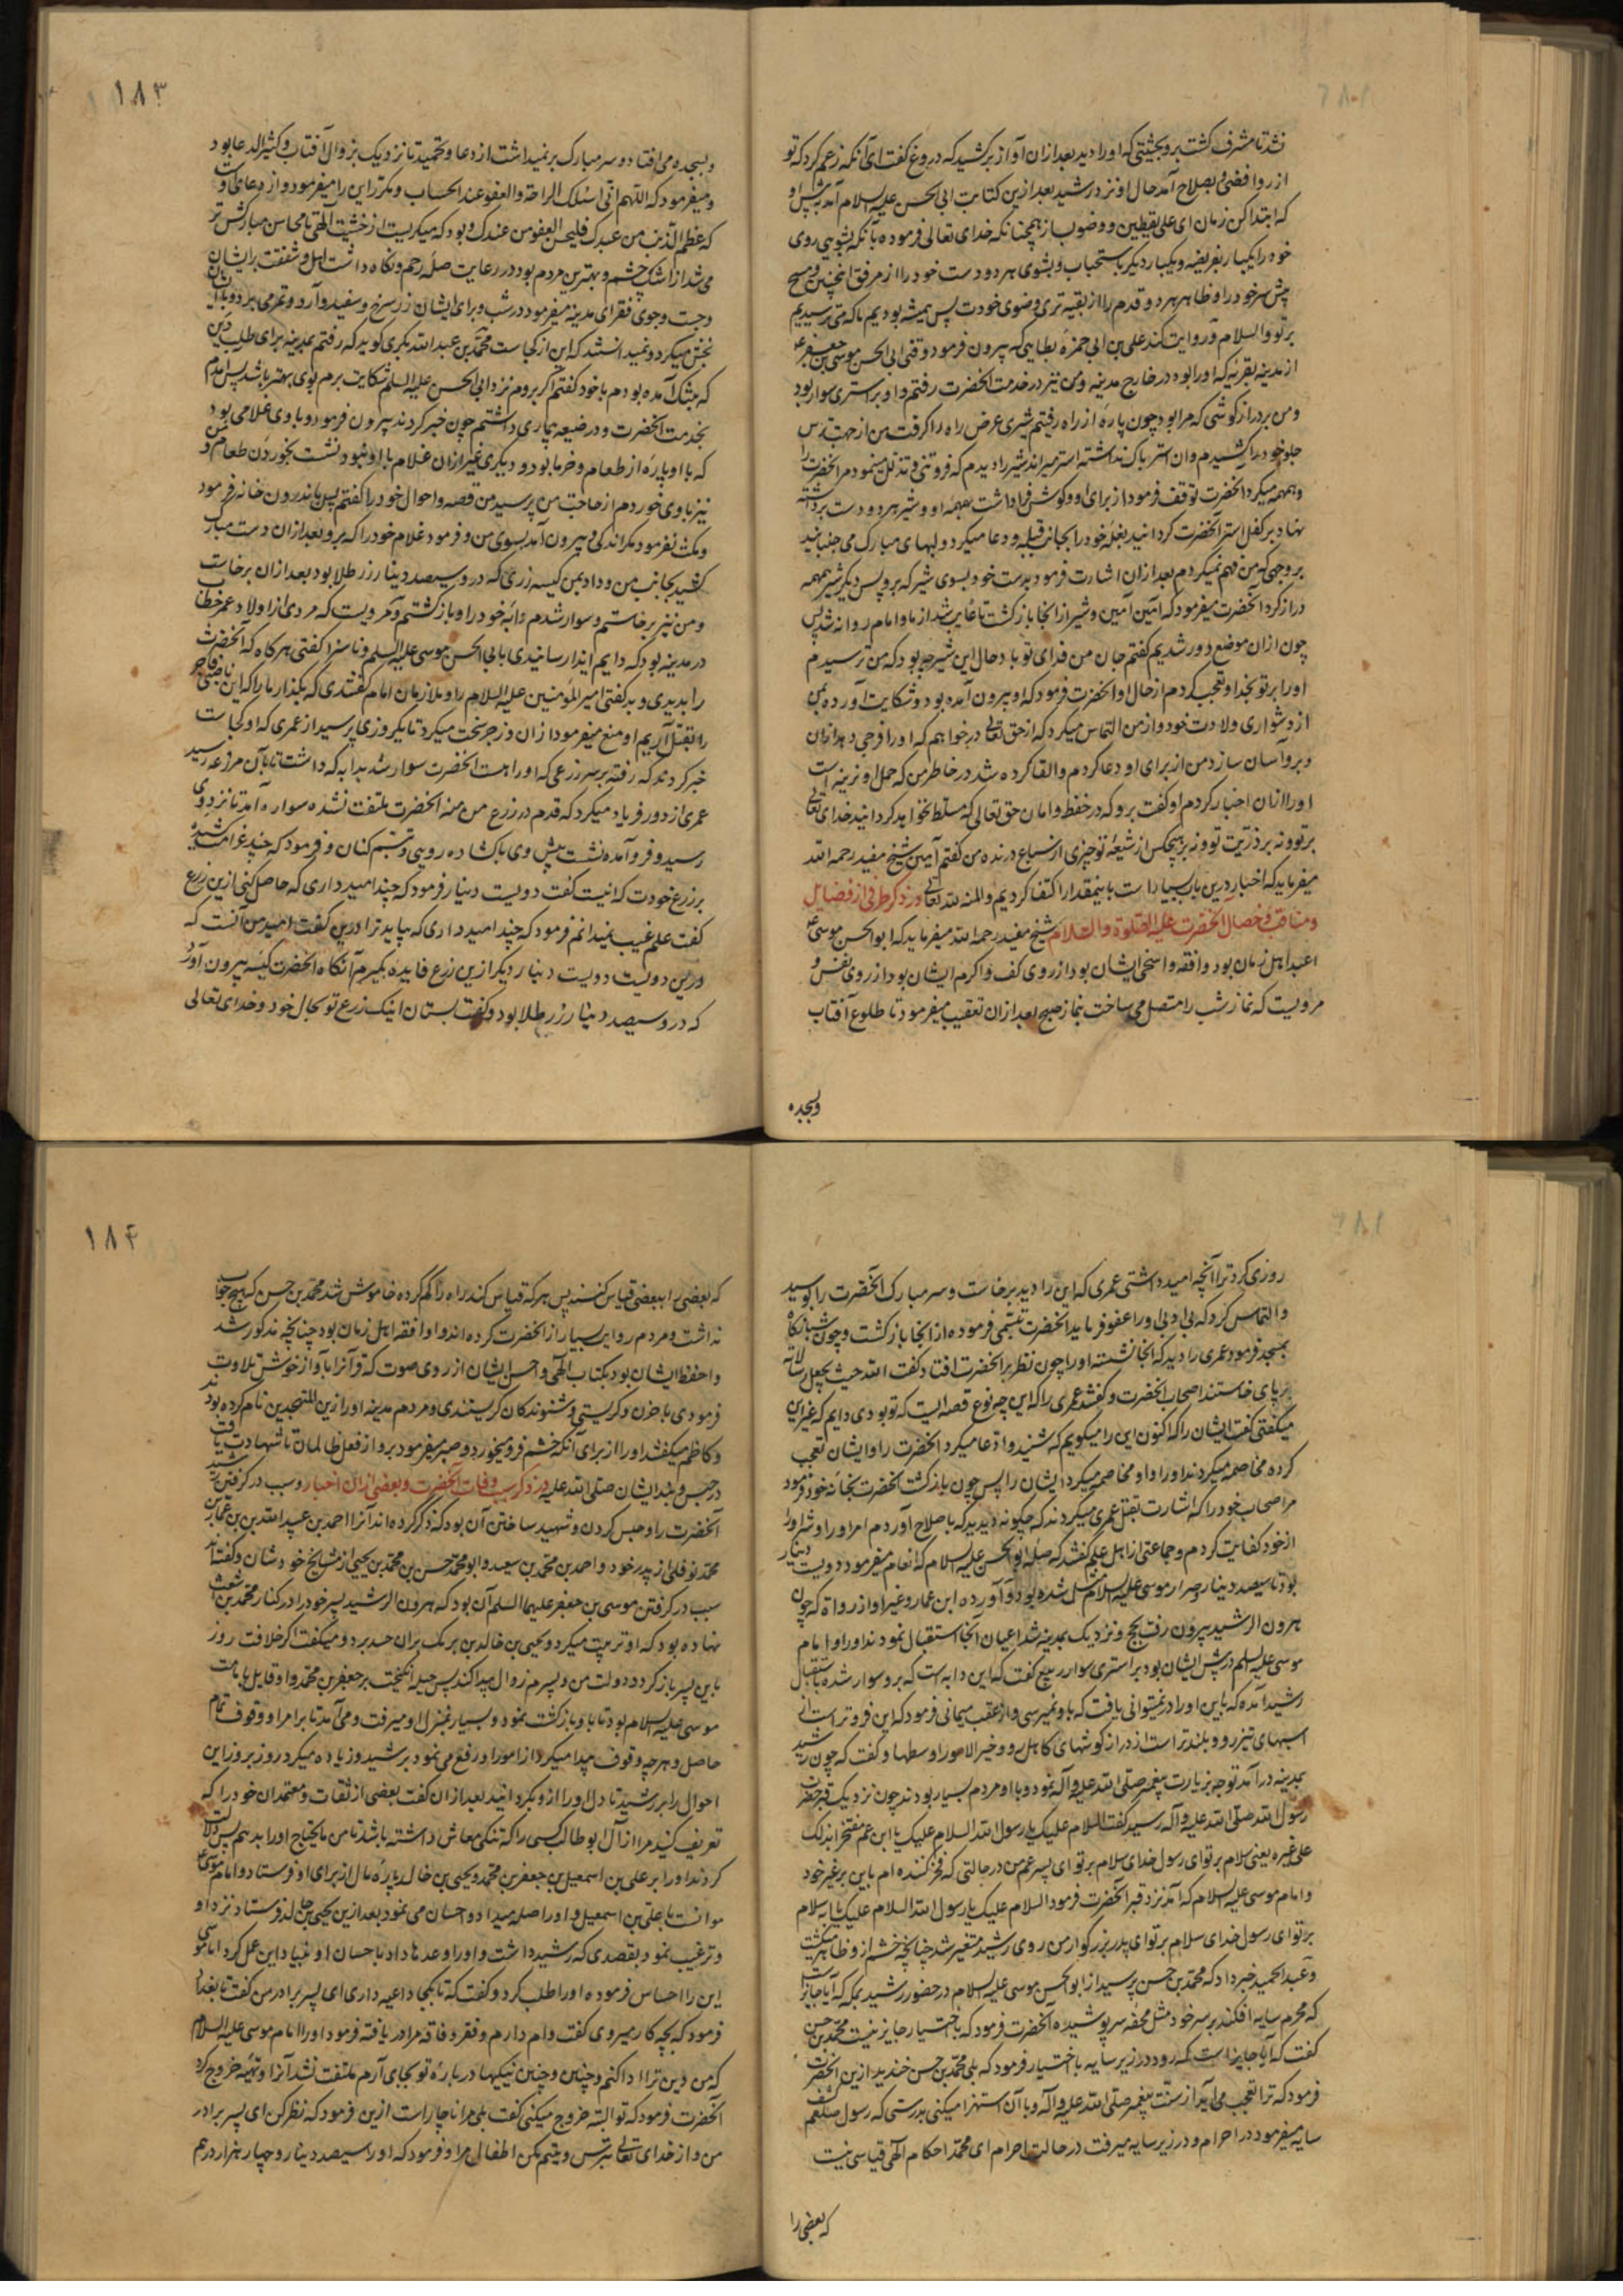 نشد تا مشرف گشت برو بحیثیتی که او را دید بعد از ان آواز برکشید که دروغ گفت ای آنکه زعم کرد که تو
از روافضی و بصلاح آمد حال او نزد رشید بعد ازین کتابت ابی الحسن علیه السلام آمد پیش او
که ابتدا کن زمان ای علی یقطین و وضو بساز همچنانکه خدای تعالی فرموده بآنکه بشویی روی
خود را یکبار بفریضه و یکبار دیگر باستحباب و بشوی هر دو دست خود را از مرفق اینچنین و مسح
پیش سر خود را و ظاهر هر دو قدم را از بقیه تری وضوی خودت پس همیشه بودیم ما که می ترسیدیم
بر تو والسلام و روایت کند علی بن ابی حمزه بطاینی که بیرون فرمود وقتی ابی الحسن موسی بن جعفر ع
از مدینه بقریه که او را بود در خارج مدینه و من نیز در خدمت آنحضرت رفتم و او بر استری سوار بود
و من بر دراز گوشی که مرا بود چون پارهٔ از راه رفتیم شیری عرض راه را گرفت من از جهت ترس
جلو خود را کشیدم وان استر باک نداشته استر میراند شیر را دیدم که فروتنی و تذلل مینمود مر آنحضرت را
و همهمه میکرد آنحضرت توقف فرمود از برای او و گوش فرا داشت همهمهٔ او و شیر هر دو دست برداشته
نهاد بر کفل استر آنحضرت گردانید بغلهٔ خود را بجانب قبله و دعا میکرد و لبهای مبارک می جنبانید
بر وجهی که من فهم نمیکردم بعد از ان اشارت فرمود بدست خود بسوی شیر که برو پس دیگر شیر همهمه
دراز کرد آنحضرت میفرمود که آمین آمین و شیر از انجا باز گشت تا غایب شد از ما و امام روانه شد پس
چون ازان موضع دور شدیم گفتم جان من فدای تو باد حال این شیر چه بود که من ترسیدم
او را بر تو بخدا و تعجب کردم از حال او آنحضرت فرمود که او بیرون آمده بود و شکایت آورده بمن
از دشواری ولادت خود و از من التماس میکرد که از حق تعالی در خواهم که او را فرجی دهد از ان
و برو آسان سازد من از برای او دعا کردم و القا کرده شد در خاطر من که حمل او نرینه است
او را از ان اخبار کردم او گفت برو که در حفظ و امان حق تعالی که مسلط نخواهد گردانید خدای تعالی
بر تو و نه بر ذریت تو و نه بر هیچکس از شیعهٔ تو چیزی از سباع درنده من گفتم آمین شیخ مفید رحمه الله
میفرماید که اخبار درین باب بسیار است باینمقدار اکتفا کردیم والمنه لله تعالی و ذکر طرفی از فضایل
و مناقب و خصال آنحضرت علیه الصلوة والسلام شیخ مفید رحمه الله میفرماید که ابوالحسن موسی ع
اعبد اهل زمان بود و افقه و اسخی ایشان بود از روی کف و اکرم ایشان بود از روی نفس و
مرویست که نماز شب را متصل می ساخت بنماز صبح بعد از ان تعقیب میفرمود تا طلوع آفتاب
وبسجده
۱۸۳
وبسجده می افتاد و سر مبارک بر نمیداشت از دعا و تحمید تا نزدیک بزوال آفتاب و کثیر الدعا بود
و میفرمود که اللهم انی اسئلک الراحة والعفو عند الحساب و مکرر این را میفرمود و از دعای اوست
که عظم الذنب من عبدک فلیحسن العفو من عندک و بود که میگریست از خشیت الهی تا محاسن مبارکش تر
می شد از اشک چشم و بهترین مردم بود در رعایت صلهٔ رحم و نگاه داشت اهل و شفقت بر ایشان
و جست و جوی فقرای مدینه میفرمود در شب و برای ایشان زر سرخ و سفید و آرد و تمر می برد و بایشان
بخش میکرد و نمیدانستند که این از کجاست محمد بن عبد الله بکری گوید که رفتم بمدینه برای طلب دین
که بتنگ آمده بودم با خود گفتم اگر بروم نزد ابی الحسن علیه السلم شکایت برم بوی بهتر باشد پس آمدم
بخدمت آنحضرت و در ضیعه بیماری داشتم چون خبر کردند بیرون فرمود و با وی غلامی بود
که با او پارهٔ از طعام و خرما بود و دیگری غیر از ان غلام با او نبود و نشست بخوردن طعام و من
نیز با وی خوردم از حاجت من پرسید من قصه و احوال خود را گفتم پس باندرون خانه فرمود
و مکث نفرمود مگر اندکی و بیرون آمد بسوی من و فرمود غلام خود را که برو بعد از ان دست مبارک
کشید بجانب من و داد بمن کیسه زری که درو سیصد دینار زر طلا بود بعد از ان برخاست
و من نیز برخاستم و سوار شدم دابهٔ خود را و باز گشتم و مرویست که مردی از اولاد عمر خطاب
در مدینه بود که دایم ایذا رسانیدی بابی الحسن موسی علیه السلم و ناسزا گفتی هر گاه که آنحضرت
را بدیدی و بد گفتی امیر المؤمنین علیه السلام را و ملازمان امام گفتندی که بگذار ما را که این ناصبی فاجر
را بقتل آریم او منع میفرمود ازان و زجر سخت میکرد تا یکروزی پرسید از عمری که او کجاست
خبر کردند که رفته بر سر زرعی که او را هست آنحضرت سوار شد بدابه که داشت تا بآن مزرعه رسید
عمری از دور فریاد میکرد که قدم در زرع من منه آنحضرت ملتفت نشده سواره آمد تا نزد وی
رسید و فرو آمده نشست پیش وی با گشاده رویی و تبسم کنان و فرمود که چند غرامت کشیدهٔ
بر زرع خودت که اینست گفت دویست دینار فرمود که چند امید داری که حاصل کنی ازین زرع
گفت علم غیب نمیدانم فرمود که چند امید داری که بیاید ترا درین گفت امید من آنست که
درین دویست دویست دینار دیگر ازین زرع فایده بگیرم آنگاه آنحضرت کیسه بیرون آورد
که درو سیصد دینار زر طلا بود و گفت بستان اینک زرع تو بحال خود و خدای تعالی
روزی کرد ترا آنچه امید داشتی عمری که این را دید برخاست و سر مبارک آنحضرت را بوسید
و التماس کرد که بی ادبی او را عفو فرماید آنحضرت تبسمی فرموده از انجا باز گشت و چون شبانگاه
بمسجد فرمود عمری را دید که آنجا نشسته او را چون نظر بر آنحضرت افتاد گفت الله حیث یجعل رسالاته
بر پای خاستند اصحاب آنحضرت و گفتند عمری را که این چه نوع قصه ایست که تو بودی دایم که غیر این
میگفتی گفت ایشان را که اکنون این را میگویم که شنیدید و دعا میکرد آنحضرت را و ایشان تعجب
کرده مخاصمه میکردند او را و او مخاصمه میکرد ایشان را پس چون باز گشت آنحضرت بخانهٔ خود فرمود
مر اصحاب خود را که اشارت بقتل عمری میکردند که چگونه دیدید که باصلاح آوردم امر او را و شر او را
از خود کفایت کردم و جماعتی از اهل علم گفتند که صلهٔ ابوالحسن علیه السلام که انعام میفرمود دویست دینار
بود تا سیصد دینار و صرار موسی علیه السلام مثل شده بود و آورده ابن عمار و غیر او از رواة که چون
هرون الرشید بیرون رفت بحج و نزدیک بمدینه شد اعیان آنجا استقبال نمودند او را و امام
موسی علیه السلم در پیش ایشان بود بر استری سوار ربیع گفت که این دابه است که برو سوار شده باستقبال
رشید آمده که باین او را در نمیتوانی یافت که باو نمیرسی و از عقب میمانی فرمود که این فروتر است از
اسبهای تیز رو و بلند تر است از دراز گوشهای کاهل رو و خیر الامور اوسطها و گفت که چون رشید
بمدینه در آمد توجه بزیارت پیغمبر صلی الله علیه و آله نمود و با او مردم بسیار بودند چون نزدیک قبر حضرت
رسول الله صلی الله علیه و آله رسید گفت السلام علیک یا رسول الله السلام علیک یا ابن عم مفتخرا بذلک
علی غیره یعنی سلام بر تو ای رسول خدای سلام بر تو ای پسر عم من در حالتی که فخر کننده ام باین بر غیر خود
و امام موسی علیه السلام که آمد نزد قبر آنحضرت فرمود السلام علیک یا رسول الله السلام علیک یا ابه سلام
بر تو ای رسول خدای سلام بر تو ای پدر بزرگوار من روی رشید متغیر شد چنانچه خشم از و ظاهر میگشت
و عبد الحمید خبر داد که محمد بن حسن پرسید از ابو الحسن موسی علیه السلام در حضور رشید بمکه که آیا جایز است
که محرم سایه افکند بر سر خود مثل محفه سر پوشیده آنحضرت فرمود که باختیار جایز نیست محمد بن حسن
گفت که آیا جایز است که رود در زیر سایه باختیار فرمود که بلی محمد بن حسن خندید ازین آنحضرت
فرمود که ترا تعجب می آید از سنت پیغمبر صلی الله علیه و آله و با آن استهزا میکنی بدرستی که رسول صلعم کشف
سایه میفرمود در احرام و در زیر سایه میرفت در حالت احرام ای محمد احکام الهی قیاسی نیست
که بعضی را
۱۸۴
که بعضی را ببعضی قیاس کنند پس هر که قیاس کند راه را گم کرده خاموش شد محمد بن حسن که هیچ جواب
نداشت و مردم روایت بسیار از آنحضرت کرده اند و او افقه اهل زمان بود چنانچه مذکور شد
و احفظ ایشان بود بکتاب الهی و احسن ایشان از روی صوت که قرآنرا بآواز خوش تلاوت
فرمودی با حزن و گریستی و شنوندگان گریستندی و مردم مدینه او را زین المتهجدین نام کرده بودند
و کاظم میگفتند او را از برای آنکه خشم فرو میخورد و صبر میفرمود برو از فعل ظالمان تا شهادت یافت
در حبس و بند ایشان صلی الله علیه در ذکر سبب وفات آنحضرت و بعضی از ان اخبار و سبب در گرفتن رشید
آنحضرت را و حبس کردن و شهید ساختن آن بود که ذکر کرده اند آنرا احمد بن عبید الله بن عمار بن
محمد نوفلی از پدر خود و احمد بن محمد بن سعید و ابو محمد حسن بن محمد بن یحیی از مشایخ خودشان و گفته اند
سبب در گرفتن موسی بن جعفر علیهما السلم آن بود که هرون الرشید پسر خود را در کنار محمد بن اشعث
نهاده بود که او تربیت میکرد و یحیی بن خالد بن برمک بران حسد برد و میگفت اگر خلافت روز
باین پسر باز گردد دولت من و پسرم زوال پیدا کند پس حیله انگیخت بر جعفر بن محمد و او قایل بامامت
موسی علیه السلام بود تا باو باز گشت نمود و بسیار بمنزل او میرفت و می آمد تا بر امر او وقوف تمام
حاصل و هر چه وقوف پیدا میکرد از امور او رفع می نمود برشید و زیاده میکرد روز بروز این
احوال را بر رشید تا دل او را از و بگردانید بعد از ان گفت بعضی از ثقات و معتمدان خود را که
تعریف کنید مرا از آل ابو طالب کسی را که تنگی معاش داشته باشد تا من مایحتاج او را بدهم پس دلالت
کردند او را بر علی بن اسمعیل بن جعفر بن محمد و یحیی بن خالد پارهٔ مال از برای او فرستاد و امام موسی ع
موانست با علی بن اسمعیل و او را صله میداد و احسان می نمود بعد ازین یحیی بن خالد فرستاد نزد او
و ترغیب نمود بقصدی که رشید داشت و او را وعدها داد باحسان او بنیاد این عمل کرد امام موسی
این را احساس فرموده او را طلب کرد و گفت که تا بکجا داعیه داری ای پسر برادر من گفت تا بغداد
فرمود که بچه کار میروی گفت وام دارم و فقر و فاقه مرا در یافته فرمود او را امام موسی علیه السلام
که من دین ترا ادا کنم و چنین و چنین نیکیها در بارهٔ تو بجای آرم ملتفت نشد آنرا و تهیهٔ خروج کرد
آنحضرت فرمود که تو البته خروج میکنی گفت بلی مرا ناچار است ازین فرمود که نظر کن ای پسر برادر
من و از خدای تعالی بترس و یتیم مکن اطفال مرا و فرمود که او را سیصد دینار و چهار هزار درم